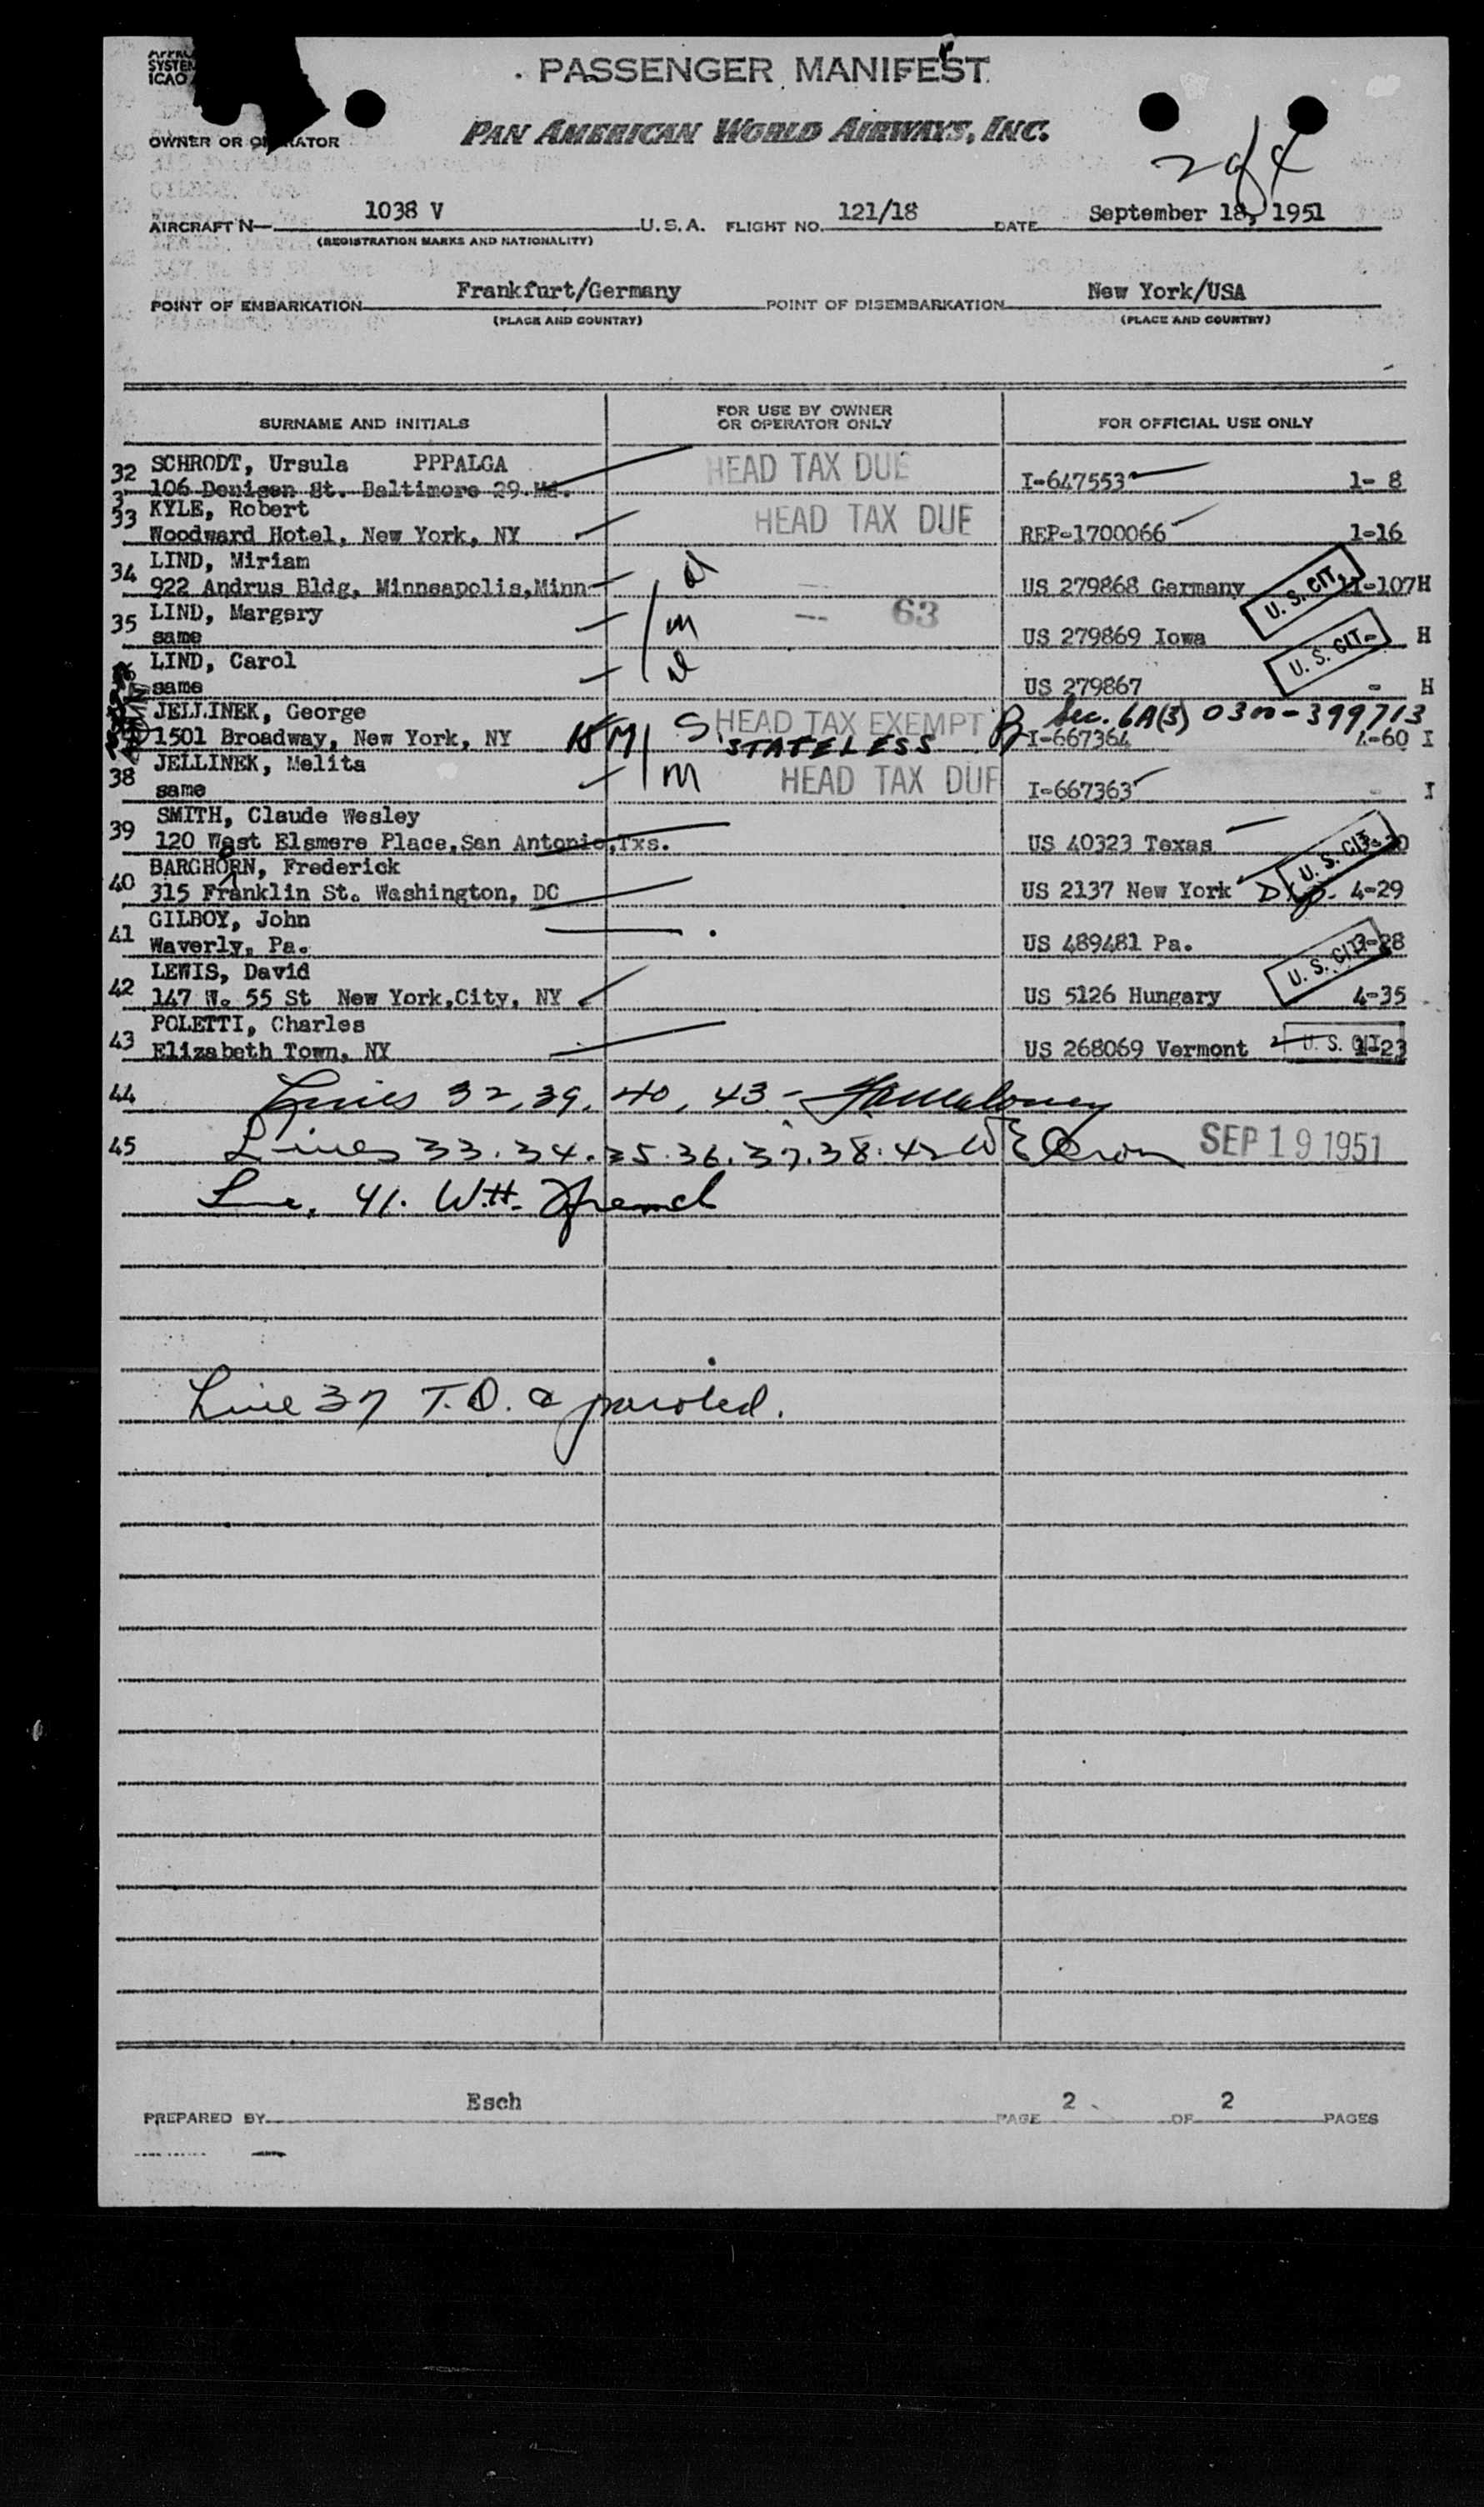 SYSTEM
ICAO
PASSENGER MANIFEST
OWNER OR OPERATOR
PAN AMERICAN WORLD AIRWAYS, INC.
2 of 4
AIRCRAFT N— 1038 V U.S.A. FLIGHT NO. 121/18 DATE September 18, 1951
(REGISTRATION MARKS AND NATIONALITY)
POINT OF EMBARKATION Frankfurt/Germany POINT OF DISEMBARKATION New York/USA
(PLACE AND COUNTRY) (PLACE AND COUNTRY)
SURNAME AND INITIALS FOR USE BY OWNER OR OPERATOR ONLY FOR OFFICIAL USE ONLY
32 SCHRODT, Ursula PPPALGA HEAD TAX DUE
106 Denison St. Baltimore 29.Md. I-647553 1- 8
33 KYLE, Robert HEAD TAX DUE
Woodward Hotel, New York, NY REP-1700066 1-16
34 LIND, Miriam
922 Andrus Bldg, Minneapolis,Minn US 279868 Germany U. S. CIT. 11-107H
35 LIND, Margery m -- 63
same US 279869 Iowa U. S. CIT. H
LIND, Carol
same US 279867 - H
JELLINEK, George M S HEAD TAX EXEMPT Sec. 6A(3) 0300-399713
1501 Broadway, New York, NY STATELESS I-667364 4-60 I
38 JELLINEK, Melita m HEAD TAX DUE
same I-667363 - I
39 SMITH, Claude Wesley
120 West Elsmere Place,San Antonio,Txs. US 40323 Texas U. S. CIT.
40 BARGHORN, Frederick
315 Franklin St. Washington, DC US 2137 New York Dip. 4-29
41 GILBOY, John
Waverly, Pa. US 489481 Pa. U. S. CIT. 3-28
42 LEWIS, David
147 W. 55 St New York,City, NY US 5126 Hungary 4-35
43 POLETTI, Charles
Elizabeth Town, NY US 268069 Vermont U. S. CIT. 1-23
44 Lines 32, 39, 40, 43 -
45 Lines 33. 34. 35. 36. 37. 38. 42 SEP 19 1951
Line. 41. W.H. French
Line 37 T.D. & paroled.
PREPARED BY Esch PAGE 2 OF 2 PAGES